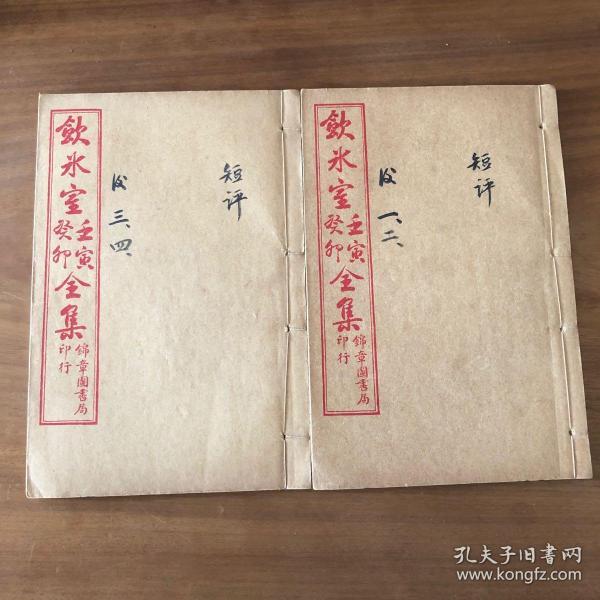 短评
𠆩 三、四、
飲氷室壬寅癸卯全集
錦章圖書局印行
短评
一、二、
飲氷室壬寅癸卯全集
錦章圖書局印行
孔夫子旧书网
www.kongfz.com